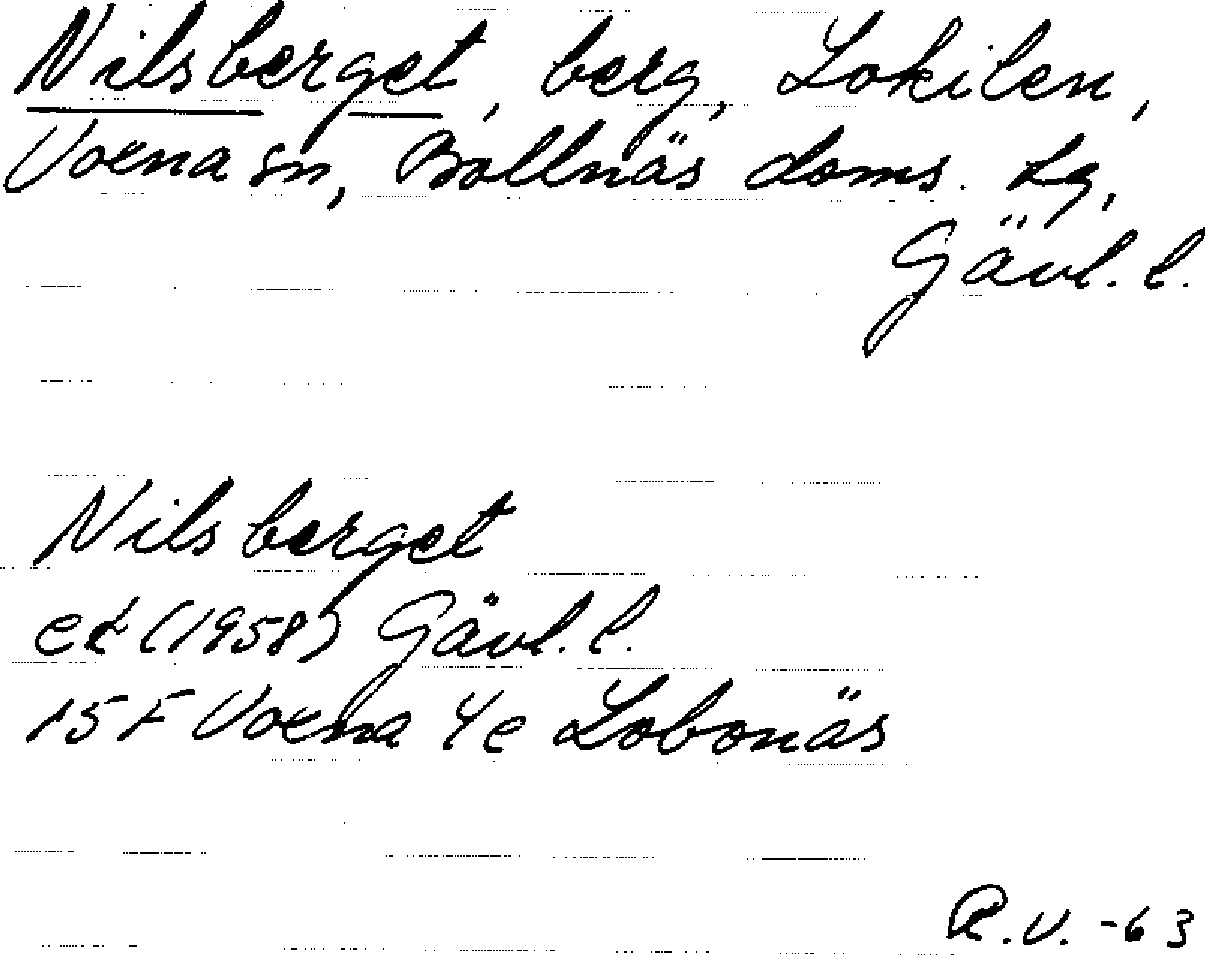 Nilsberget, berg, Lokilen,
Voxna sn, Bollnäs doms. lg,
Gävl. l.
Nilsberget
ek (1958) Gävl. l.
15F Voxna 4e Lobonäs
R.V. -63